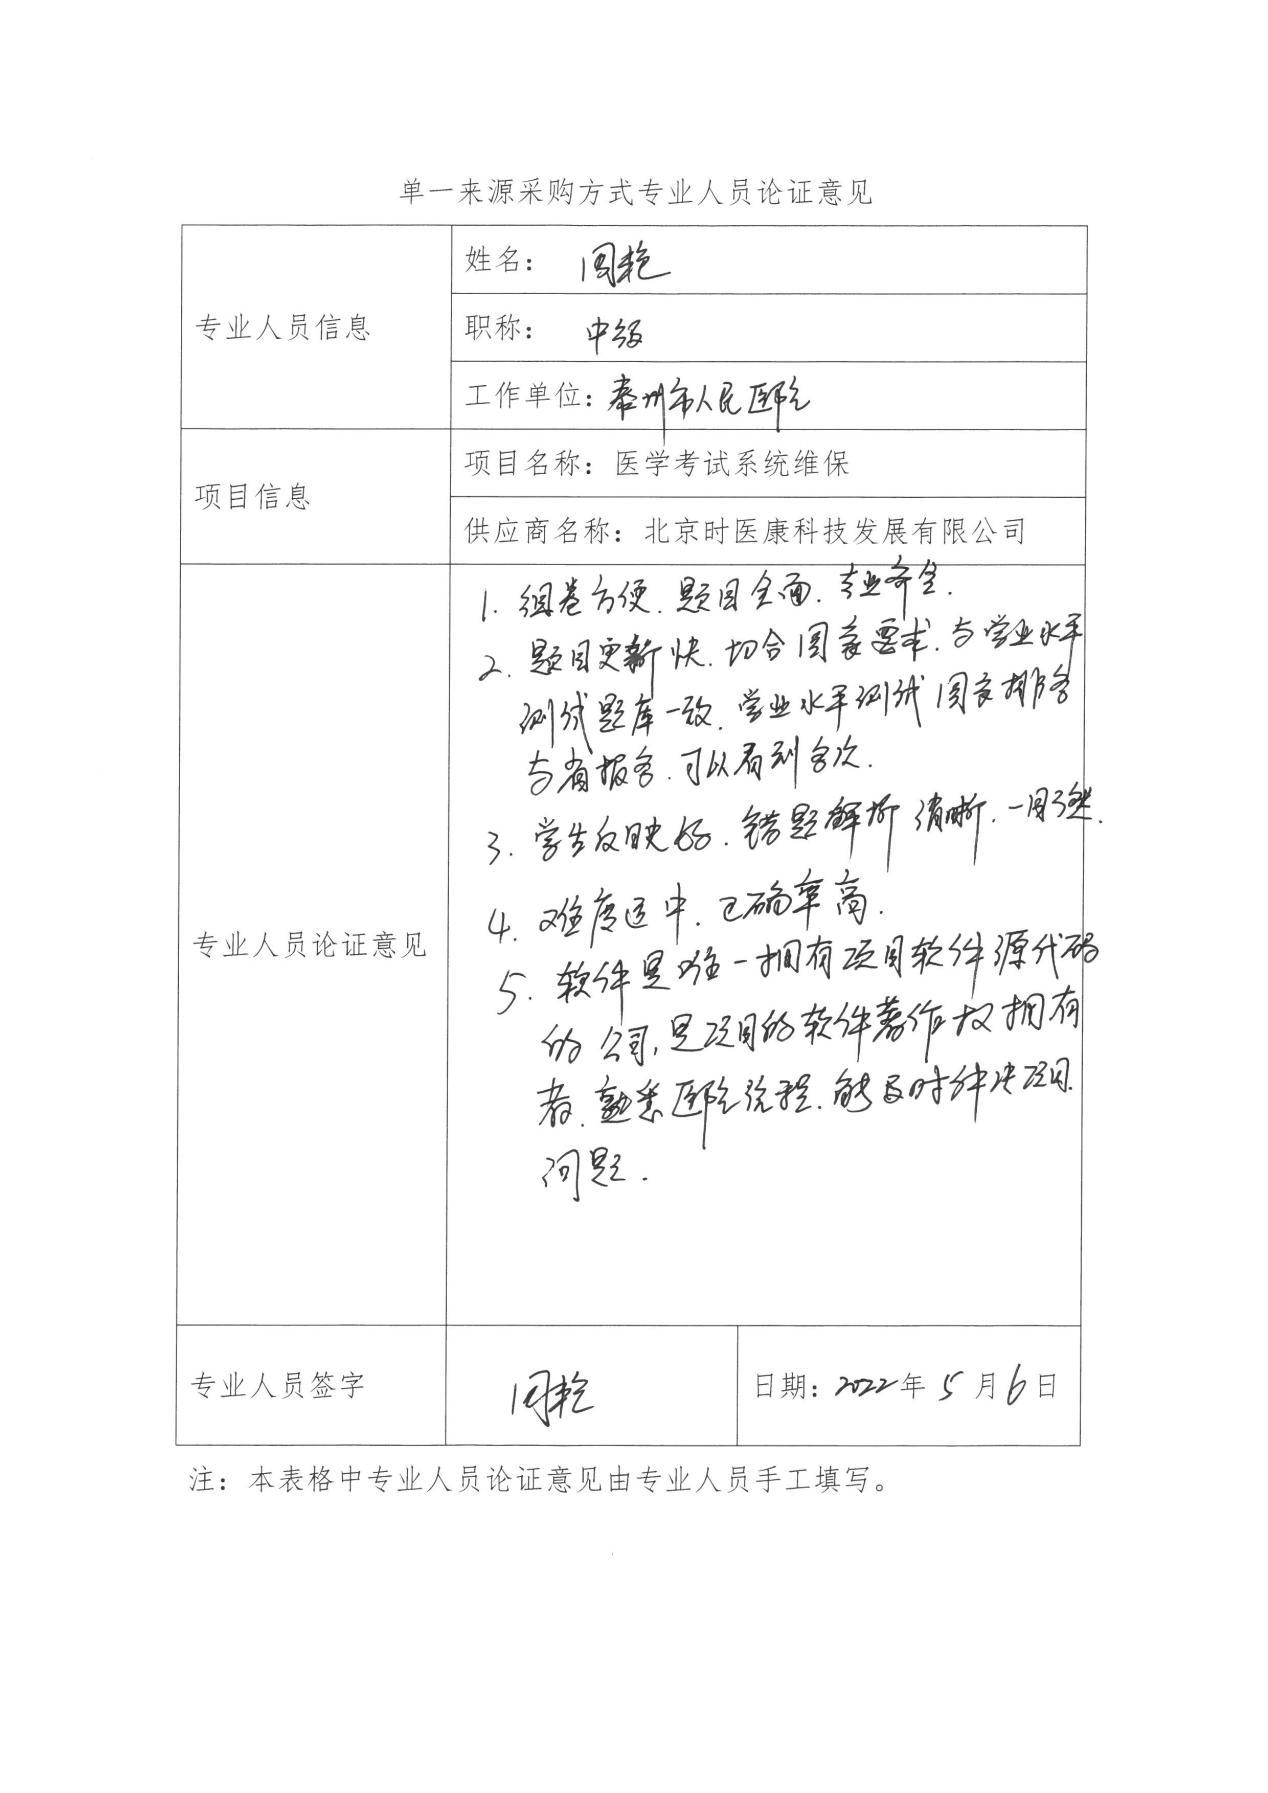 单一来源采购方式专业人员论证意见
专业人员信息
姓名：周艳
职称：中级
工作单位：泰州市人民医院
项目信息
项目名称：医学考试系统维保
供应商名称：北京时医康科技发展有限公司
专业人员论证意见
1. 组卷方便、题目全面、专业齐全.
2. 题目更新快、切合国家要求、与学业水平
测试题库一致、学业水平测试国家排名
与省报名、可以看到名次.
3. 学生反映好、错题解析清晰、一目了然.
4. 难度适中、正确率高.
5. 软件是唯一拥有项目软件源代码
的公司，是项目的软件著作权拥有
者、熟悉医院流程、能及时解决项目
问题.
专业人员签字
周艳
日期：2022年5月6日
注：本表格中专业人员论证意见由专业人员手工填写。